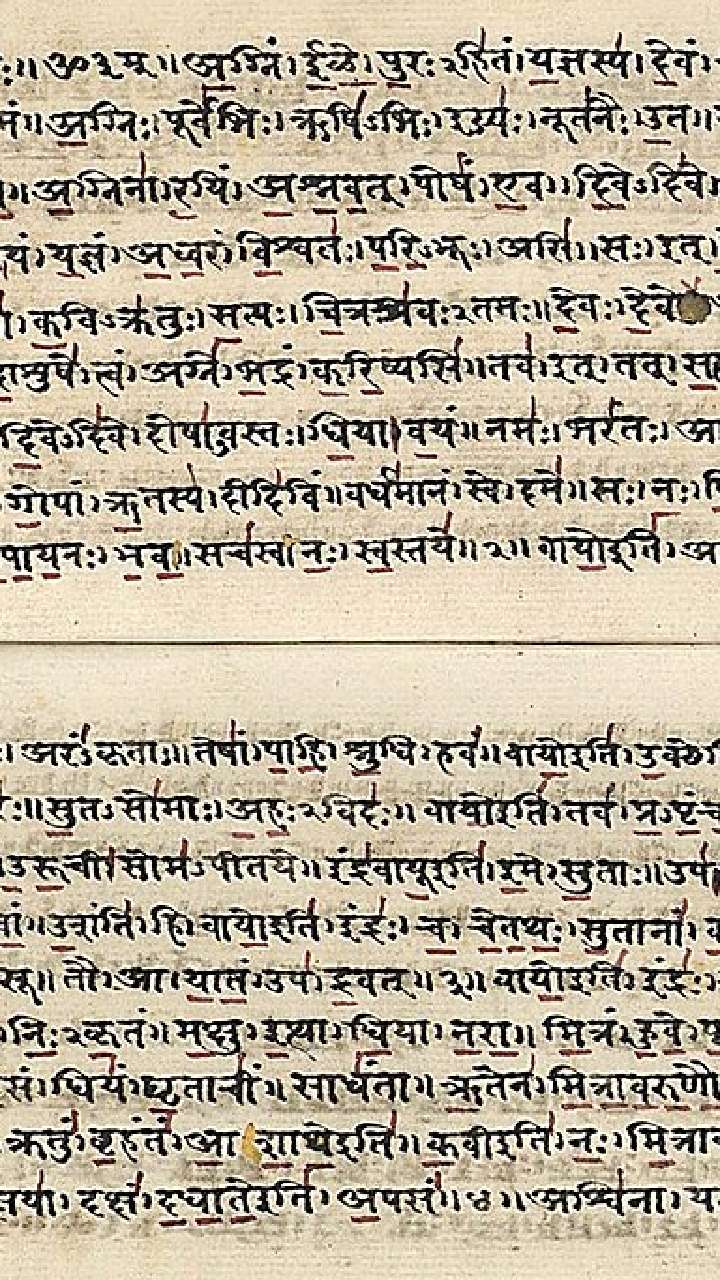 ः॥ ॐ३म् ॥ अग्निं । ईळे । पुरः२हितं । यज्ञस्य । देवं ।
॥ अग्निः । पूर्वेभिः । ऋषिऽभिः । इड्यः । नूतनैः । उत ॥
॥ अग्निना । रयिं । अश्नवत् । पोषं । एव ॥ दिवेऽदिवे ।
यं । यज्ञं । अध्वरं । विश्वतः । परिऽभूः । असि ॥ सः । इत् ।
कविऽक्रतुः । सत्यः । चित्रश्रवः२तमः ॥ देवः । देवे
दाशुषे । त्वं । अग्ने । भद्रं । करिष्यसि ॥ तव । इत् । तत् ।
दिवेऽदिवे । दोषाऽवस्तः । धिया । वयं ॥ नमः । भरंतः । आ
गोपां । ऋतस्य । दीदिविं ॥ वर्धमानं । स्वे । दमे ॥ सः । नः ।
पायनः । भव ॥ सचस्व । नः । स्वस्तये ॥ २ ॥ वायोइति ।
अरंऽकृताः ॥ तेषां । पाहि । श्रुधि । हवं ॥ वायोइति ।
॥ सुतऽसोमाः । अहः२विदः ॥ वायोइति । तव । प्रऽपृंच
उरूची । सोमऽपीतये ॥ इंद्रवायूइति । इमे । सुताः ॥ उप
॥ उशंति । हि । वायोइति । इंद्रः । च । चेतथः । सुतानां ।
सू ॥ तौ । आ । यातं । उप । द्रवत् ॥ ३ ॥ वायोइति । इंद्रः ।
निः२कृतं ॥ मक्षु । इत्था । धिया । नरा ॥ मित्रं । हुवे ।
सं । धियं । घृताचीं । साधंता ॥ ऋतेन । मित्रावरुणौ
क्रतुं । बृहंतं । आशाथेइति ॥ कवीइति । नः । मित्रा
क्षया । दक्षं । दधातेइति । अपसं ॥ ४ ॥ अश्विना ।